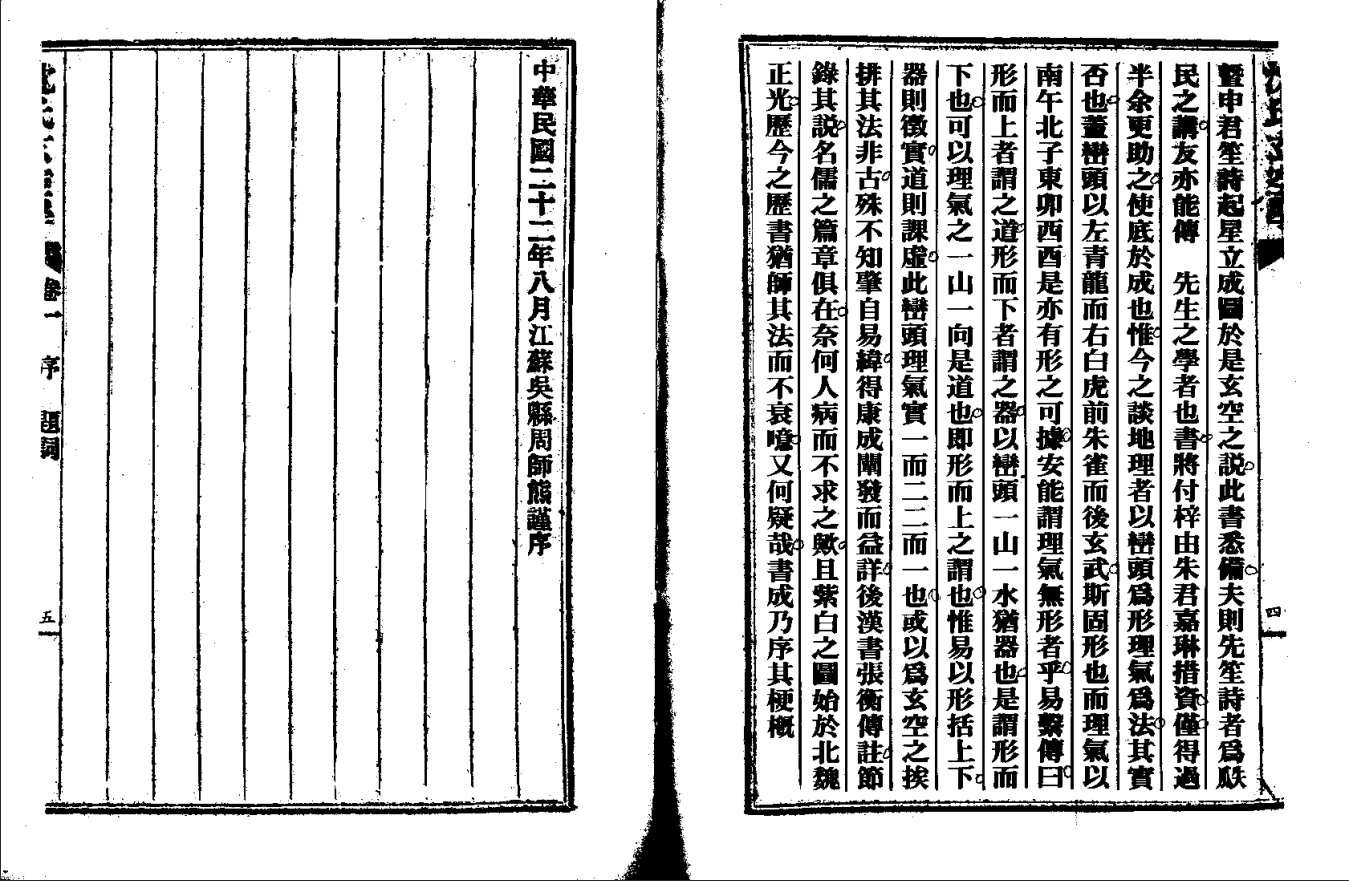 暨申君笙詩起星立成圖於是玄空之説。此書悉備。夫則先笙詩者爲瞂
民之講。友亦能傳　先生之學者也。書將付梓由朱君嘉琳措資。僅。得過
半余更助之。使底於成也。惟今之談地理者以巒頭爲形理氣爲法。其實
否也。蓋巒頭以左青龍而右白虎前朱雀而後玄武。斯固形也而理氣以
南午北子東卯西酉是亦有形之可據。安能謂理氣無形者乎。易繫傳曰。
形而上者謂之道。形而下者謂之器。以巒頭一山一水猶器也。是謂形而
下也。可以理氣之一山一向是道也。即形而上之謂也。惟易以形括上下。
器則徵實。道則課虛。此巒頭理氣實一而二二而一也。或以爲玄空之挨
排其法非古。殊不知肇自易緯。得康成闡發而益詳。後漢書張衡傳註。節
錄其説。名儒之篇章俱在。奈何人病而不求之歟。且紫白之圖始於北魏
正光。歷今之歷書猶師其法而不衰噫。又何疑哉。書成乃序其梗概
四
中華民國二十二年八月江蘇吳縣周師熊謹序
卷一　序　題詞
五